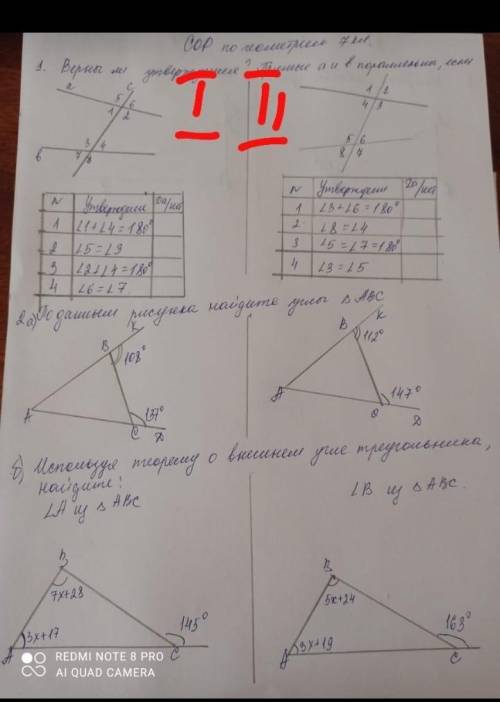 СОР по геометрии 7 кл.
1. Верны ли утверждения? Прямые а и в параллельны, если
I II
a c
5 6
1 2
3 4
в 7 8
1 2
4 3
5 6
8 7
N Утверждение Да/нет
1 ∠1+∠4=180°
2 ∠5=∠3
3 ∠2+∠4=180°
4 ∠6=∠7
N Утверждение Да/нет
1 ∠3+∠6=180°
2 ∠8=∠4
3 ∠5=∠7=180°
4 ∠3=∠5
2а) По данным рисунка найдите углы △ABC
K
B
108°
A
137°
C D
K
B
112°
A
147°
C D
б) Используя теорему о внешнем угле треугольника,
найдите:
∠A из △ABC
∠B из △ABC.
B
7x+23
3x+17
145°
A C
B
5x+24
3x+19
163°
A C
REDMI NOTE 8 PRO
AI QUAD CAMERA